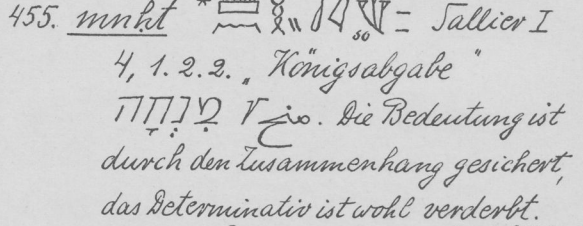 455. mnḥt * Sallier I
4, 1. 2. 2. „Königsabgabe“
מִנְחָה √ منح. Die Bedeutung ist
durch den Zusammenhang gesichert,
das Determinativ ist wohl verderbt.